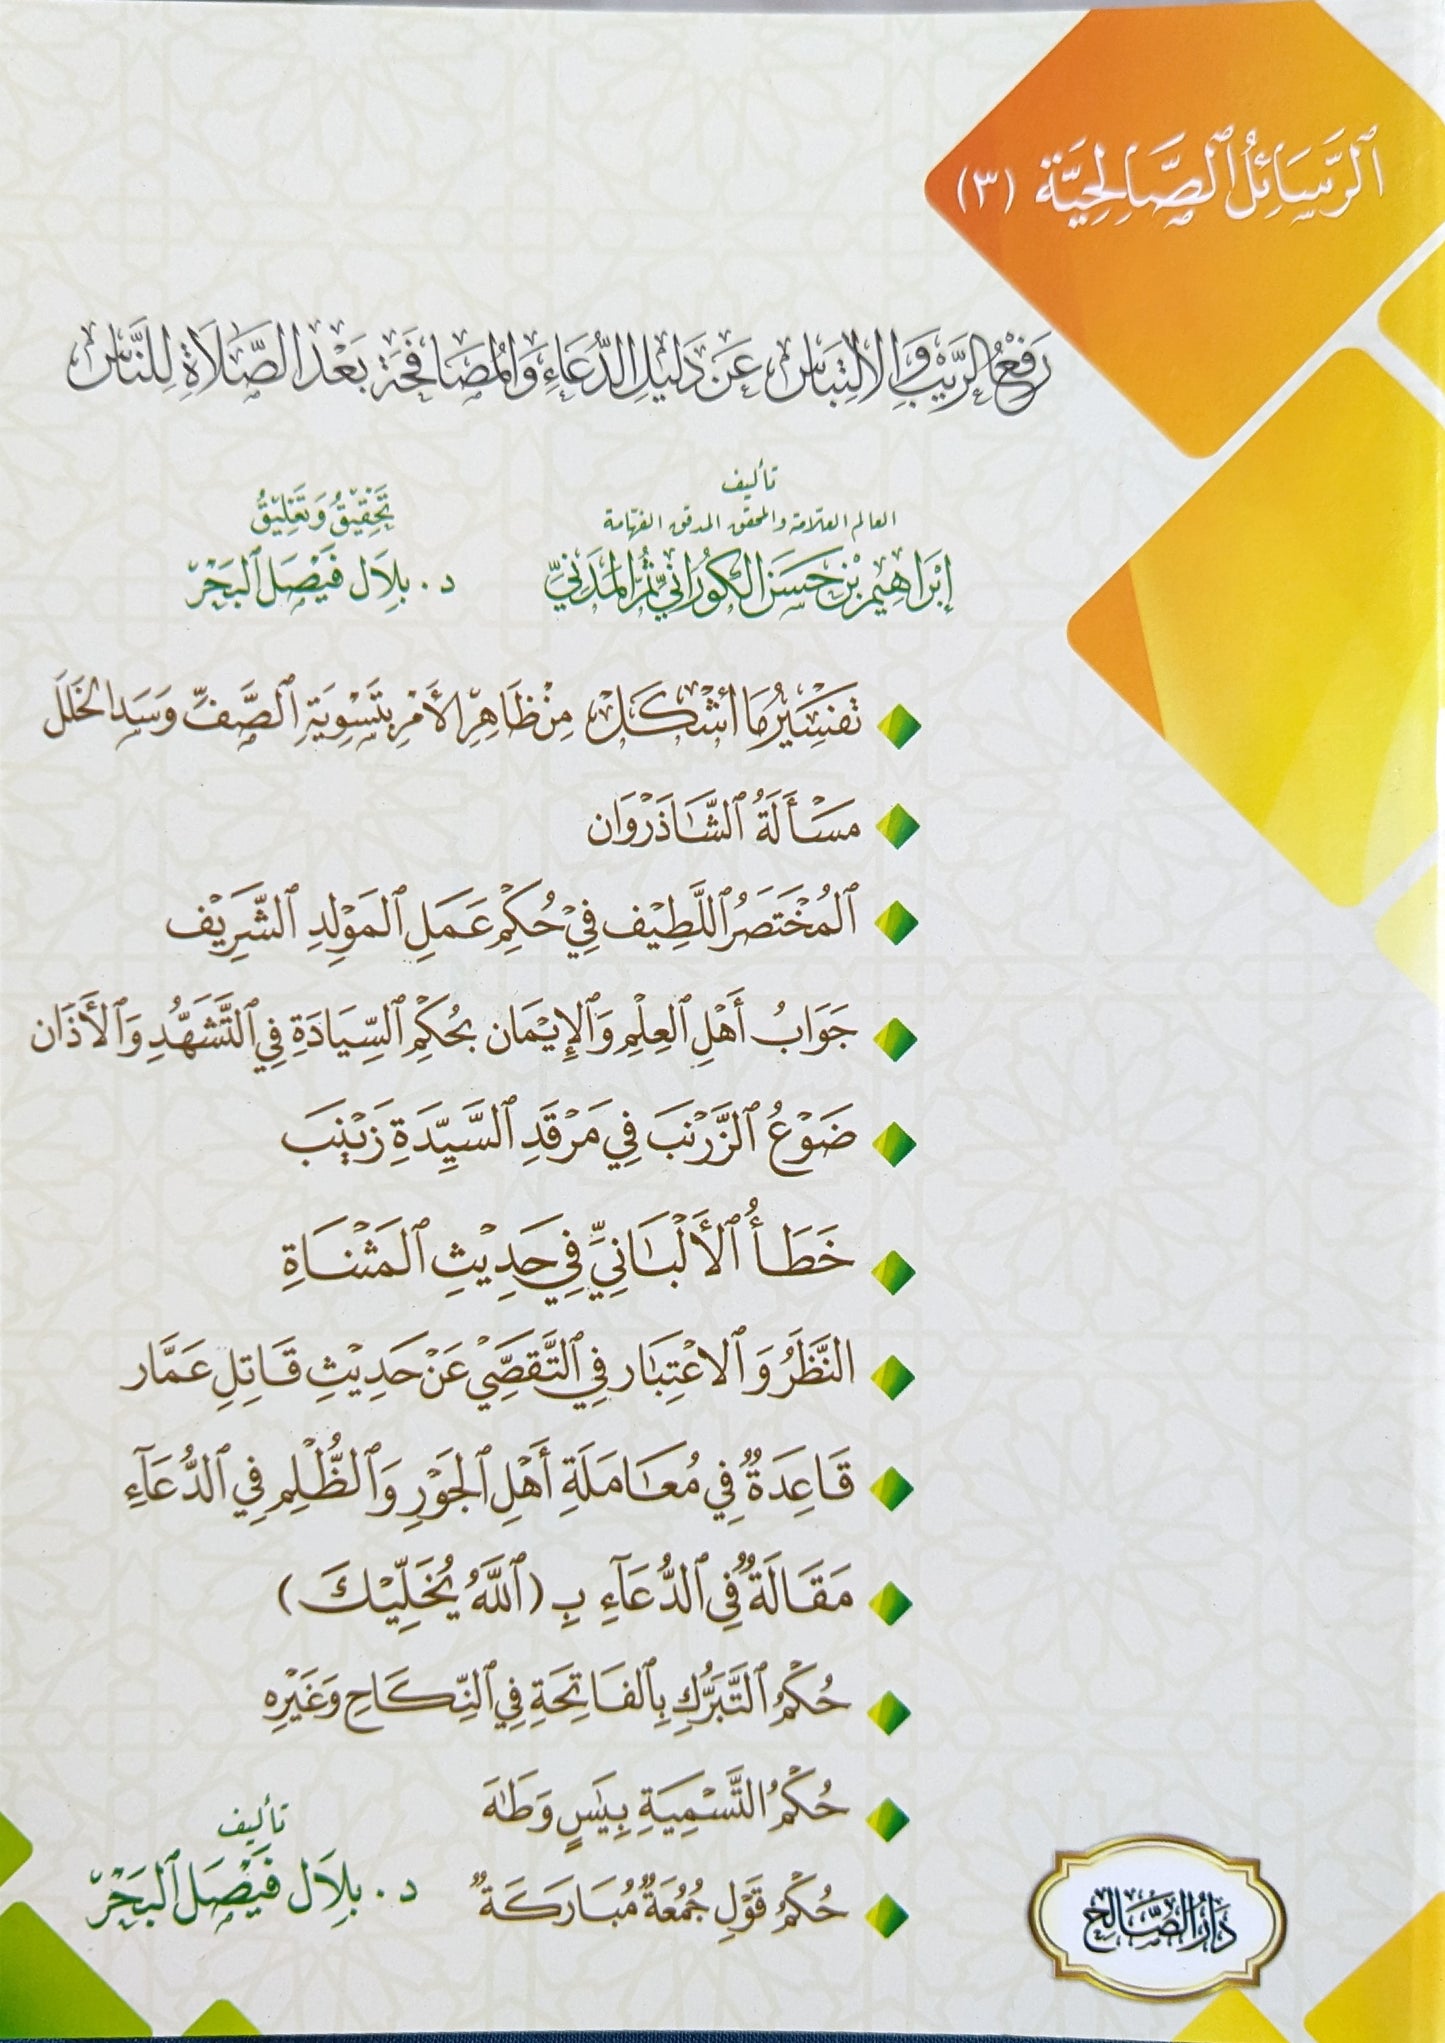 الرَّسَائِلُ الصَّالِحِيَّة (٣)
رَفْعُ الرَّيْبِ وَالِالْتِبَاسِ عَنْ دَلِيلِ الدُّعَاءِ وَالمُصَافَحَةِ بَعْدَ الصَّلَاةِ لِلنَّاسِ
تأليف
العالم العلامة والمحقق المدقق الفهامة
إِبْرَاهِيم بْن حَسَن الكُورَانِيّ ثُمَّ المَدَنِيّ
تَحْقِيقُ وَتَعْلِيقُ
د. بِلَال فَيْصَل البَحْر
تَفْسِيرُ مَا أَشْكَلَ مِنْ ظَاهِرِ الأَمْرِ بِتَسْوِيَةِ الصَّفِّ وَسَدِ الخَلَل
مَسْأَلَةُ الشَّاذَرْوَان
المُخْتَصَرُ اللَّطِيْف فِيْ حُكْمِ عَمَلِ المَوْلِدِ الشَّرِيْف
جَوَابُ أَهْلِ العِلْمِ وَالإِيْمَان بحُكْمِ السِّيَادَةِ فِي التَّشَهُّدِ وَالأَذَان
ضَوْعُ الزَّرْنَبَ فِي مَرْقَدِ السَّيِّدَةِ زَيْنَب
خَطَأُ الأَلْبَانِيِّ فِي حَدِيْثِ المَثْنَاةِ
النَّظَرُ وَالاعْتِبَار فِي التَّقَصِّيْ عَنْ حَدِيْثِ قَاتِلِ عَمَّار
قَاعِدَةٌ فِي مُعَامَلَةِ أَهْلِ الجَوْرِ وَالظُّلْمِ فِي الدُّعَآءِ
مَقَالَةٌ فِي الدُّعَآءِ بِ (اللَّهُ يُخَلِّيْكَ)
حُكْمُ التَّبَرُّكِ بِالفَاتِحَةِ فِي النِّكَاحِ وَغَيْرِهِ
حُكْمُ التَّسْمِيَةِ بِيَسٍ وَطَهَ
حُكْمُ قَوْلِ جُمُعَةٌ مُبَارَكَةٌ
تأليف
د. بِلَال فَيْصَل البَحْر
دَارُ الصَّالِح